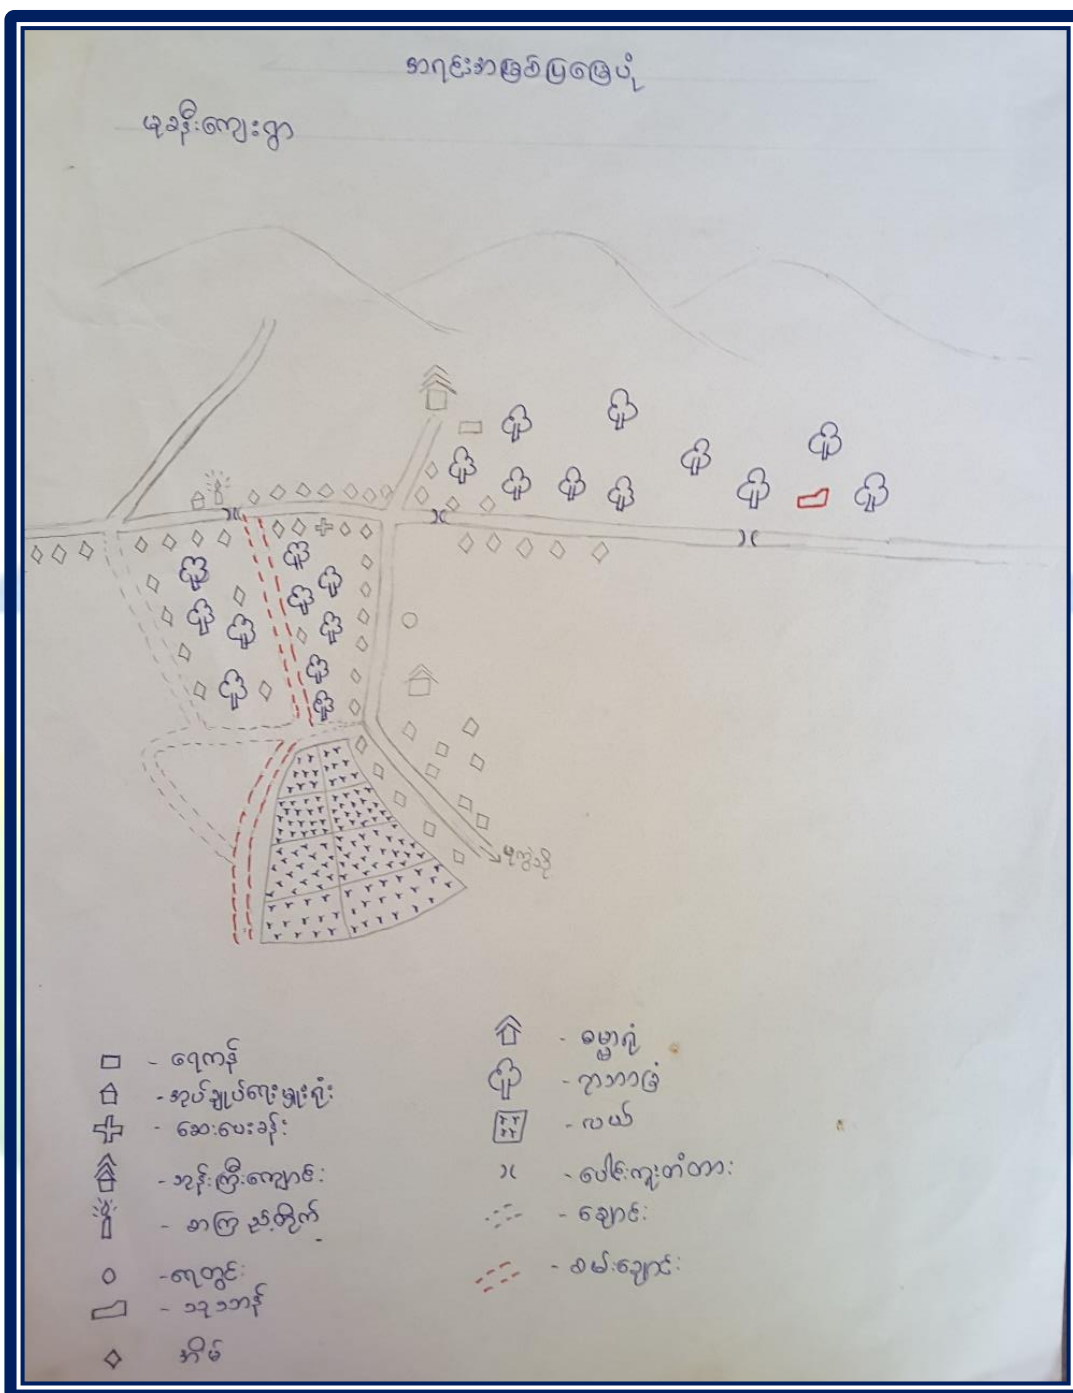 အရင်းအမြစ်ပြမြေပုံ
ဖူခနီးကျေးရွာ
ရေကန်
- အုပ်ချုပ်ရေးမှူးရုံး
- ဆေးပေးခန်း
- ဘုန်းကြီးကျောင်း
- စာကြည့်တိုက်
- ရေတွင်း
- သုသာန်
အိမ်
- ဓမ္မာရုံ
- ရွာဘာခြံ
- လယ်
- ပေါင်းကူးတံတား
- ချောင်း
- စမ်းချောင်း